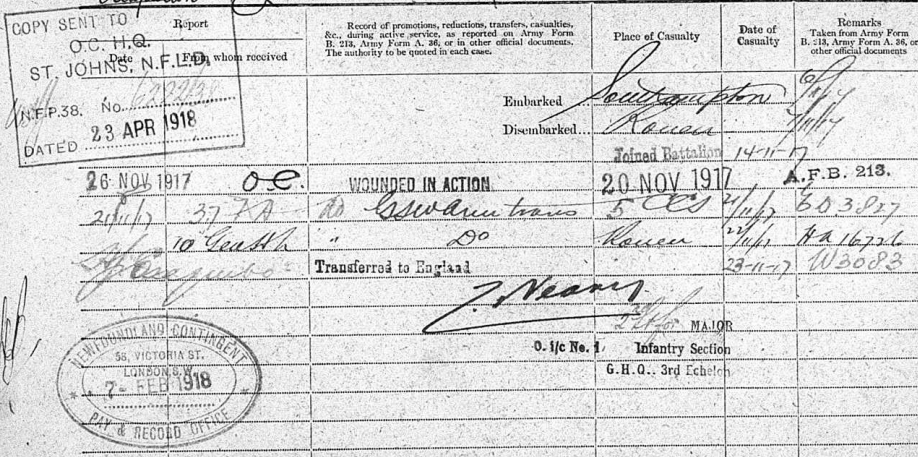 COPY SENT TO
O.C. H.Q.
ST. JOHNS, N.F.L.D.
N.F.P.38. No.
DATED 23 APR 1918
Report
Date From whom received
Record of promotions, reductions, transfers, casualties,
&c., during active service, as reported on Army Form
B. 213, Army Form A. 36, or in other official documents.
The authority to be quoted in each case.
Place of Casualty
Date of
Casualty
Remarks
Taken from Army Form
B. 213, Army Form A. 36, or
other official documents
Embarked Southampton
Disembarked... Rouen 7/11/17
Joined Battalion 14-11-17
26 NOV 1917 O.C. WOUNDED IN ACTION 20 NOV 1917 A.F.B. 213.
21/11/17 37 FA GSW Arm trans 5 CCS 21/11/17
10 Gen H " Do Rouen 22/11/17
Transferred to England 23-11-17 W3083
MAJOR
O. i/c No. 1 Infantry Section
G.H.Q., 3rd Echelon
NEWFOUNDLAND CONTINGENT
58, VICTORIA ST.
LONDON, S.W.
7- FEB 1918
PAY & RECORD OFFICE